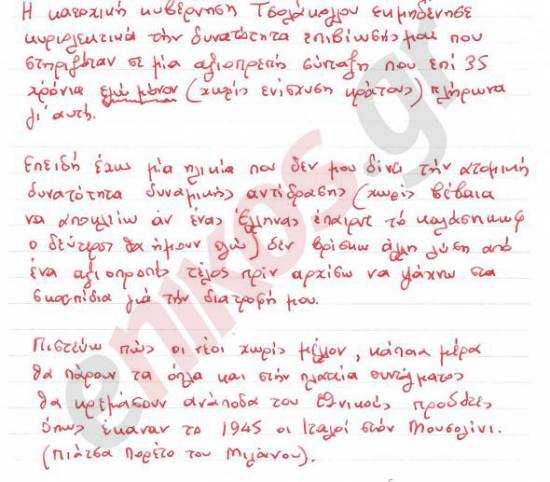 Η κατοχική κυβέρνηση Τσολάκογλου εκμηδένησε
κυριολεκτικά την δυνατότητα επιβίωσής μου που
στηριζόταν σε μία αξιοπρεπή σύνταξη που επί 35
χρόνια εγώ μόνον (χωρίς ενίσχυση κράτους) πλήρωνα
γι' αυτή.
Επειδή έχω μία ηλικία που δεν μου δίνει την ατομική
δυνατότητα δυναμικής αντίδρασης (χωρίς βέβαια
να αποκλείω αν ένας Έλληνας έπαιρνε το καλάσνικωφ
ο δεύτερος θα ήμουν εγώ) δεν βρίσκω άλλη λύση από
ένα αξιοπρεπές τέλος πριν αρχίσω να ψάχνω στα
σκουπίδια για την διατροφή μου.
Πιστεύω πως οι νέοι χωρίς μέλλον, κάποια μέρα
θα πάρουν τα όπλα και στην πλατεία συντάγματος
θα κρεμάσουν ανάποδα τους εθνικούς προδότες
όπως έκαναν το 1945 οι Ιταλοί στον Μουσολίνι.
(Πιάτσα Λορέτο του Μιλάνου).
enikos.gr